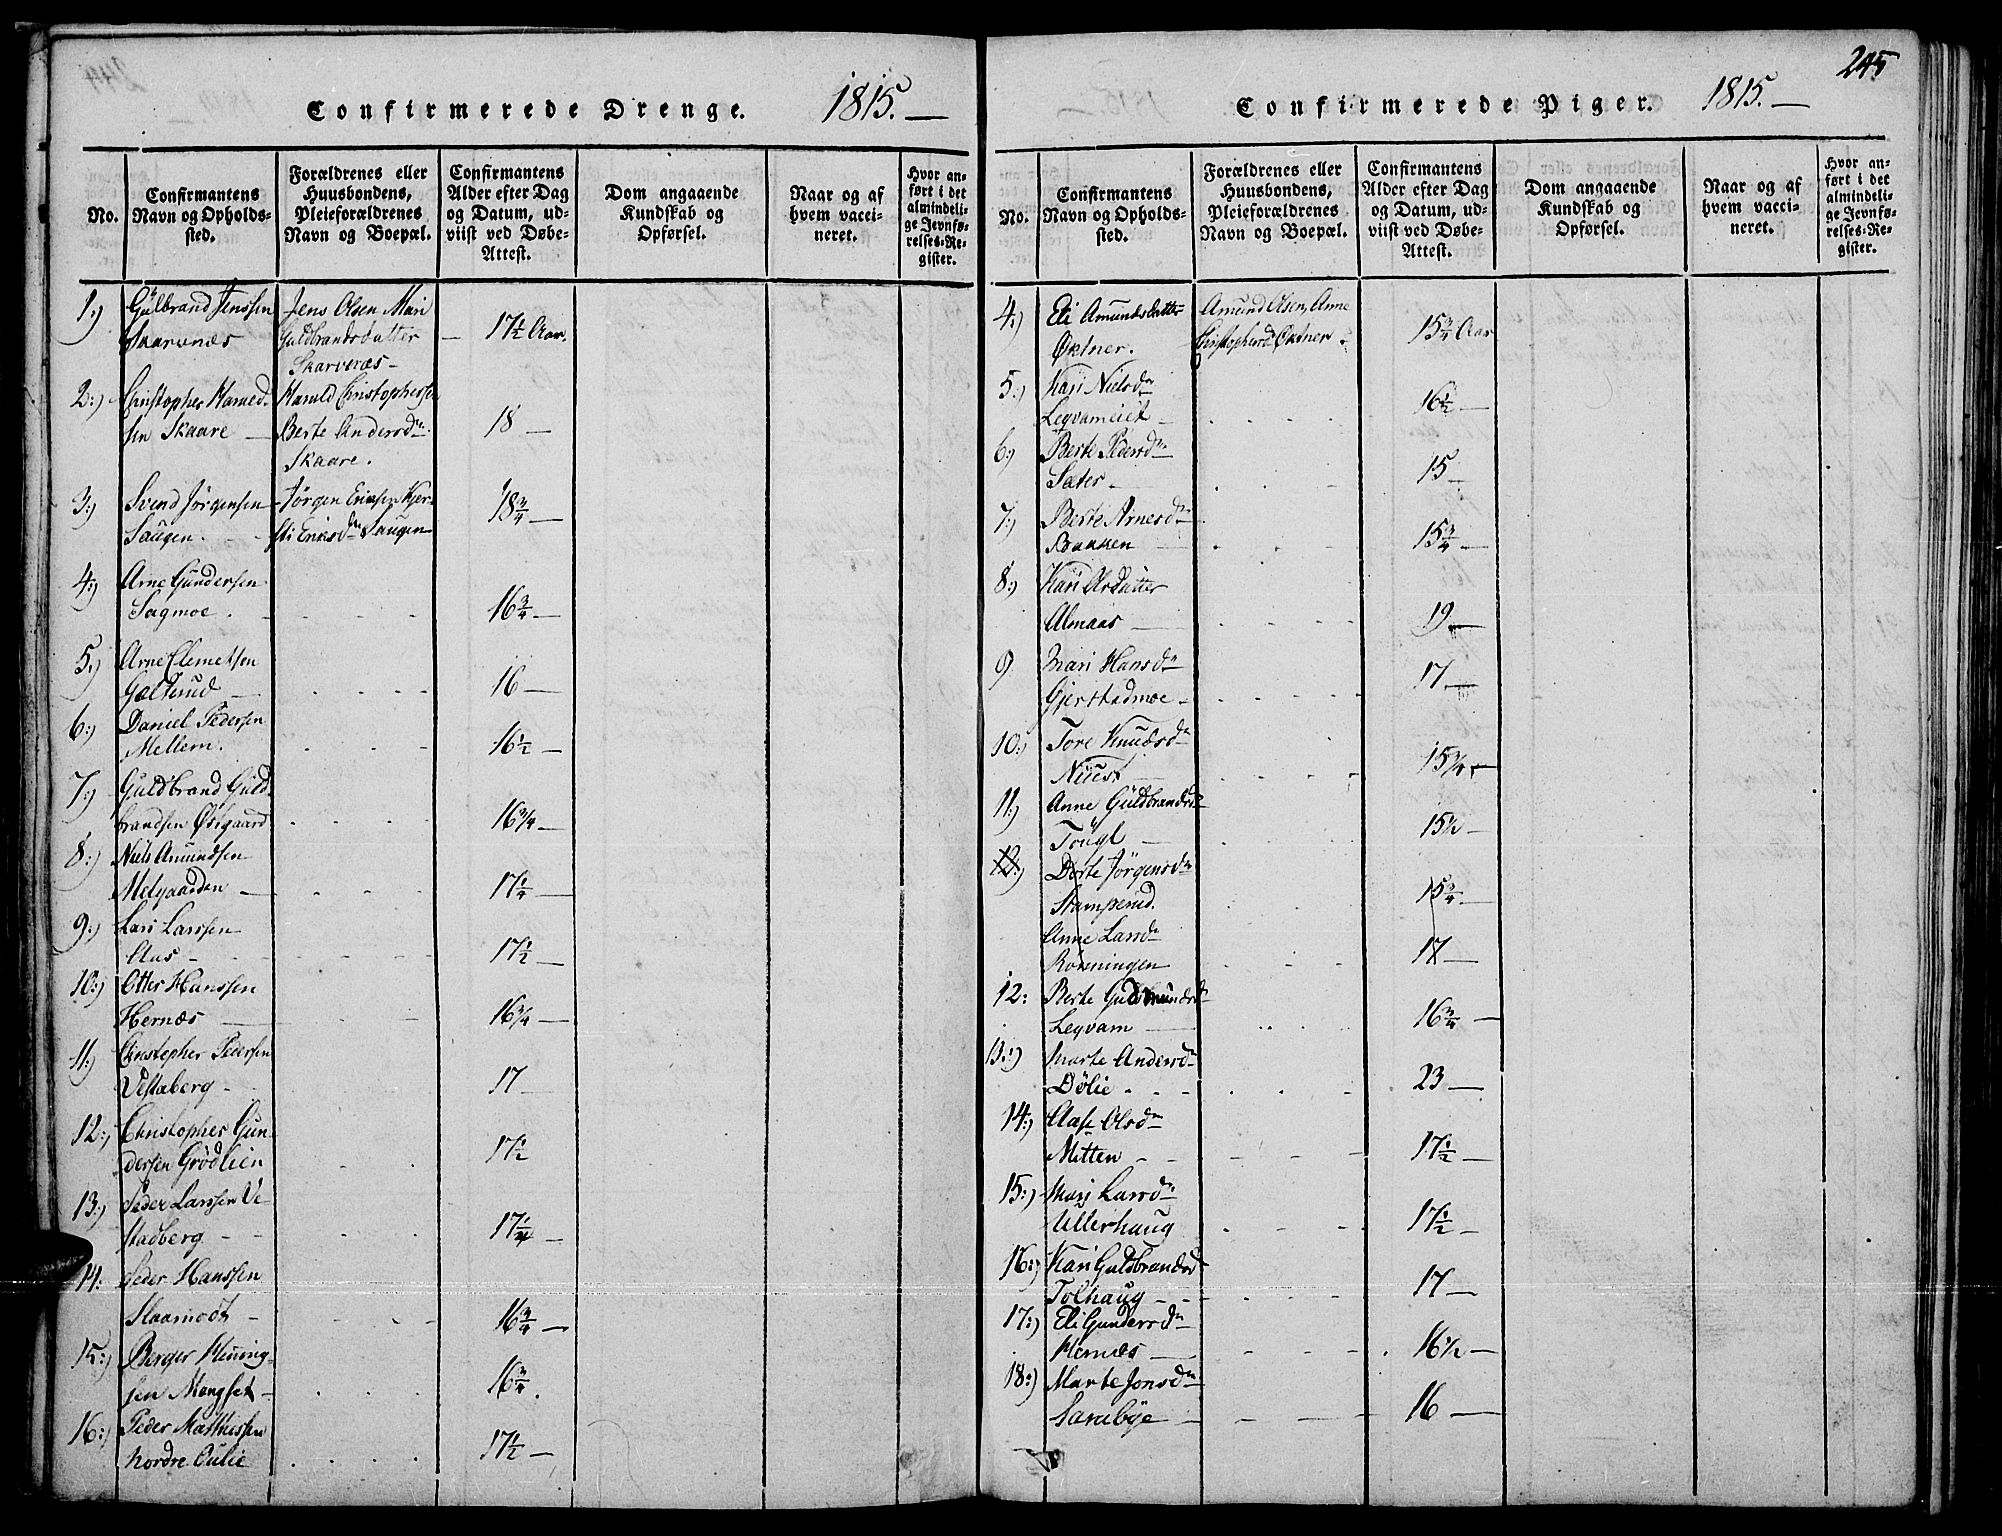 Confirmerede Drenge. 1815.
No.
Confirmantens Navn og Opholdssted.
Forældrenes eller Huusbondens, Pleieforældrenes Navn og Boepæl.
Confirmantens Alder efter Dag og Datum, udviist ved Døbe-Attest.
Dom angaaende Kundskab og Opførsel.
Naar og af hvem vaccineret.
Hvor anført i det almindelige Jevnførelses-Register.
1:) Gulbrand Jenssen Jens Olsen Mari
Skarvnæs Guldbrandsdatter — 17½ Aar.
Skarveræs –
2:) Christopher Harued- Harald Christophersen
sen Skaare — Berte Andersdr 18 —
Skaare.
3:) Svend Jörgensen Jörgen Ericsen Kjer-
Saugen. sti Ericsdr Saugen 18¾ —
4:) Arne Gundersen
Sagmoe. 16¾ —
5:) Arne Clemetsen
Galterud — 16 —
6:) Daniel Pedersen
Mellem. 16½ —
7:) Guldbrand Guld-
brandsen Østgaard 16¾ —
8:) Niels Amundsen
Melgaarden — 17¼ —
9:) Lars Larssen
Aas – 17½ —
10:) Otter Hanssen
Hernæs — 16¾ —
11:) Christopher Pedersen
Vestaberg – 17 —
12:) Christopher Gun-
dersen Grödlien 17½
13:) Peder Larssen Ve-
stadberg – – 17¼ —
14: Peder Hanssen
Skaamodt – 16¾ —
15:) Berger Hening-
sen Mangset – 16¾.
16:) Peder Matthissen
Nordre Oulie 17½ —
245
Confirmerede Piger. 1815. —
No.
Confirmantens Navn og Opholdssted.
Forældrenes eller Huusbondens, Pleieforældrenes Navn og Boepæl.
Confirmantens Alder efter Dag og Datum, udviist ved Døbe-Attest.
Dom angaaende Kundskab og Opførsel.
Naar og af hvem vaccineret.
Hvor anført i det almindelige Jevnførelses-Register.
4:) Eli Amundsdatter Amund Olsen, Anne
Øktner. Christophersd Øktner. 15¾ Aar
5:) Kari Nielsdr
Legvameiet – 16½ —
6:) Berte Pedersdr
Sæter – 15 —
7:) Berte Arnesdr
Bakken 15¾ —
8:) Kari Olsdatter
Almaas — 19 —
9 Mari Hansdr
Gjerstadmoe – 17 —
10:) Tore Knudsdr
Niust — 15¾ —
11:) Anne Guldbrandsdr
Tougl — 15½ —
12:) Dorte Jörgensdr
Stamperud. 15¾ —
Anne Larsdr
Rönningen 17 —
12: Berte Gudmundsdr
Legvam — 16¾ —
13:) Marte Andersdr
Dölie – 23 —
14:) Aase Olsdr
Mitten – – 17½ —
15:) Mari Larsdr
Ullerhaug 17½ —
16:) Kari Guldbrandsd
Tolhaug – – 17 —
17:) Eli Gundersdr
Hernæs — 16½ —
18:) Marte Jonsdr
Sorebye – 16 —